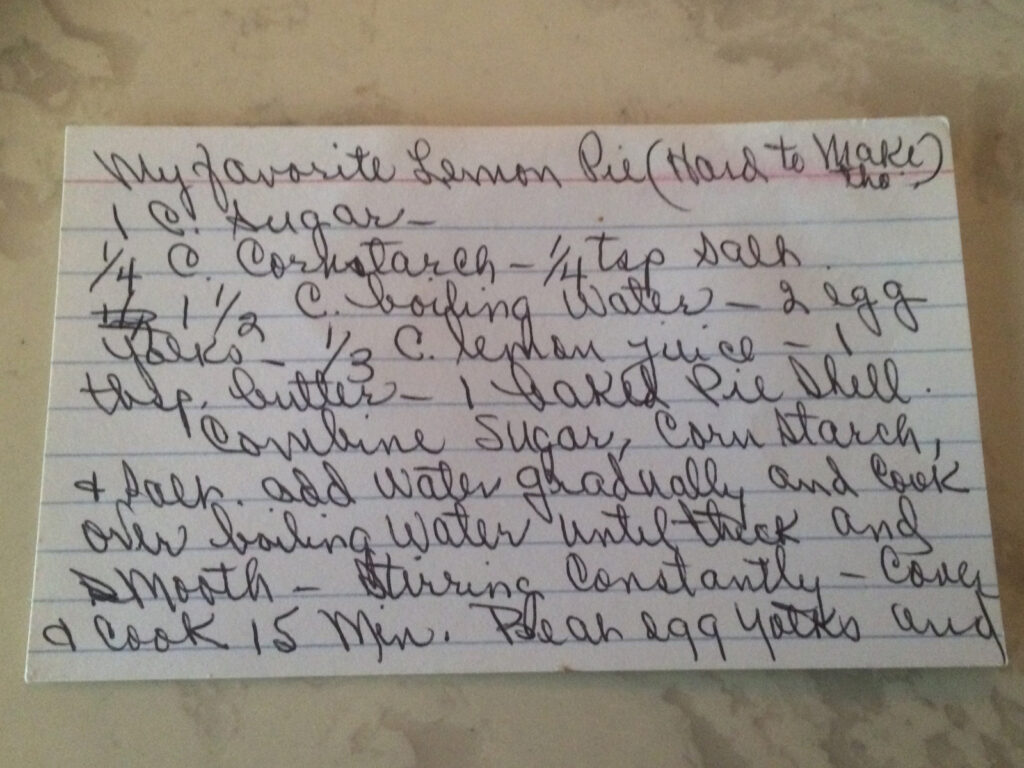 My favorite Lemon Pie (Hard to Make tho.)
1 C. Sugar –
1/4 C. Cornstarch – 1/4 tsp salt.
1 1/2 C. boiling Water – 2 egg
yolks – 1/3 C. lemon juice – 1
tbsp. butter – 1 baked Pie Shell.
Combine Sugar, Corn Starch,
& Salt. add Water gradually and Cook
over boiling Water until thick and
Smooth – Stirring Constantly – Cover
& Cook 15 Min. Beat egg yolks and